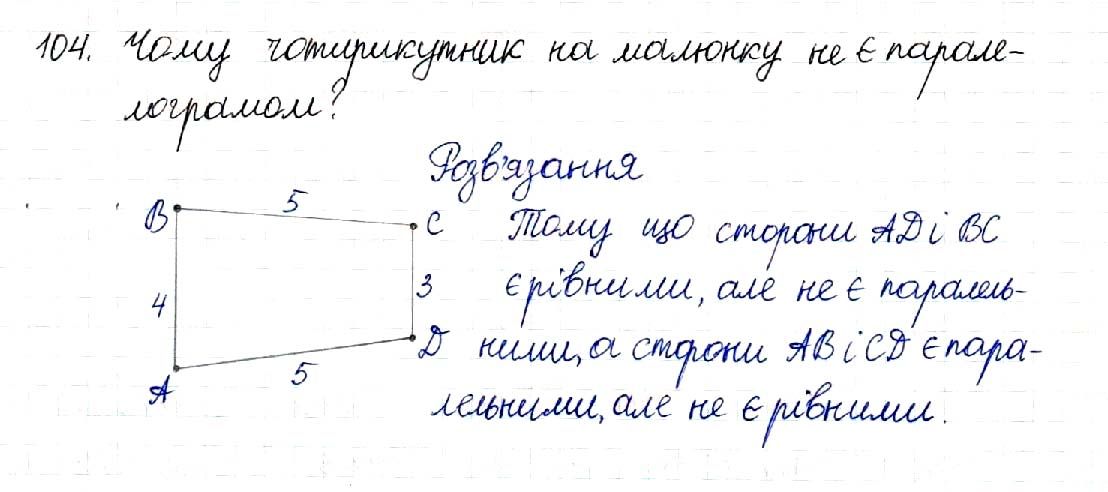 104. Чому чотирикутник на малюнку не є парале-
лограмом?
Розв'язання
B 5 C Тому що сторони AD і BC
4 3 є рівними, але не є паралель-
D ними, а сторони AB і CD є пара-
A 5 лельними, але не є рівними.